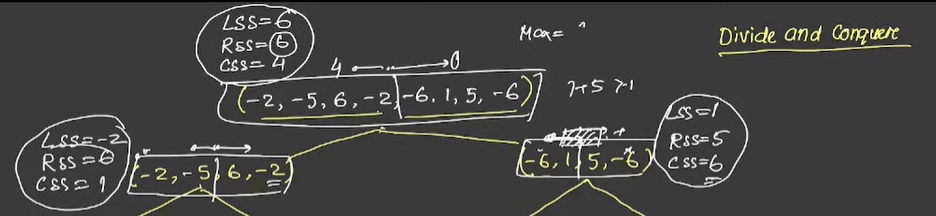 LSS=6
RSS=6
CSS=4
Max=
Divide and Conquere
4
0
(-2, -5, 6, -2, -6, 1, 5, -6)
LSS=-2
RSS=6
CSS=1
(-2, -5, 6, -2)
(-6, 1, 5, -6)
LSS=1
RSS=5
CSS=6